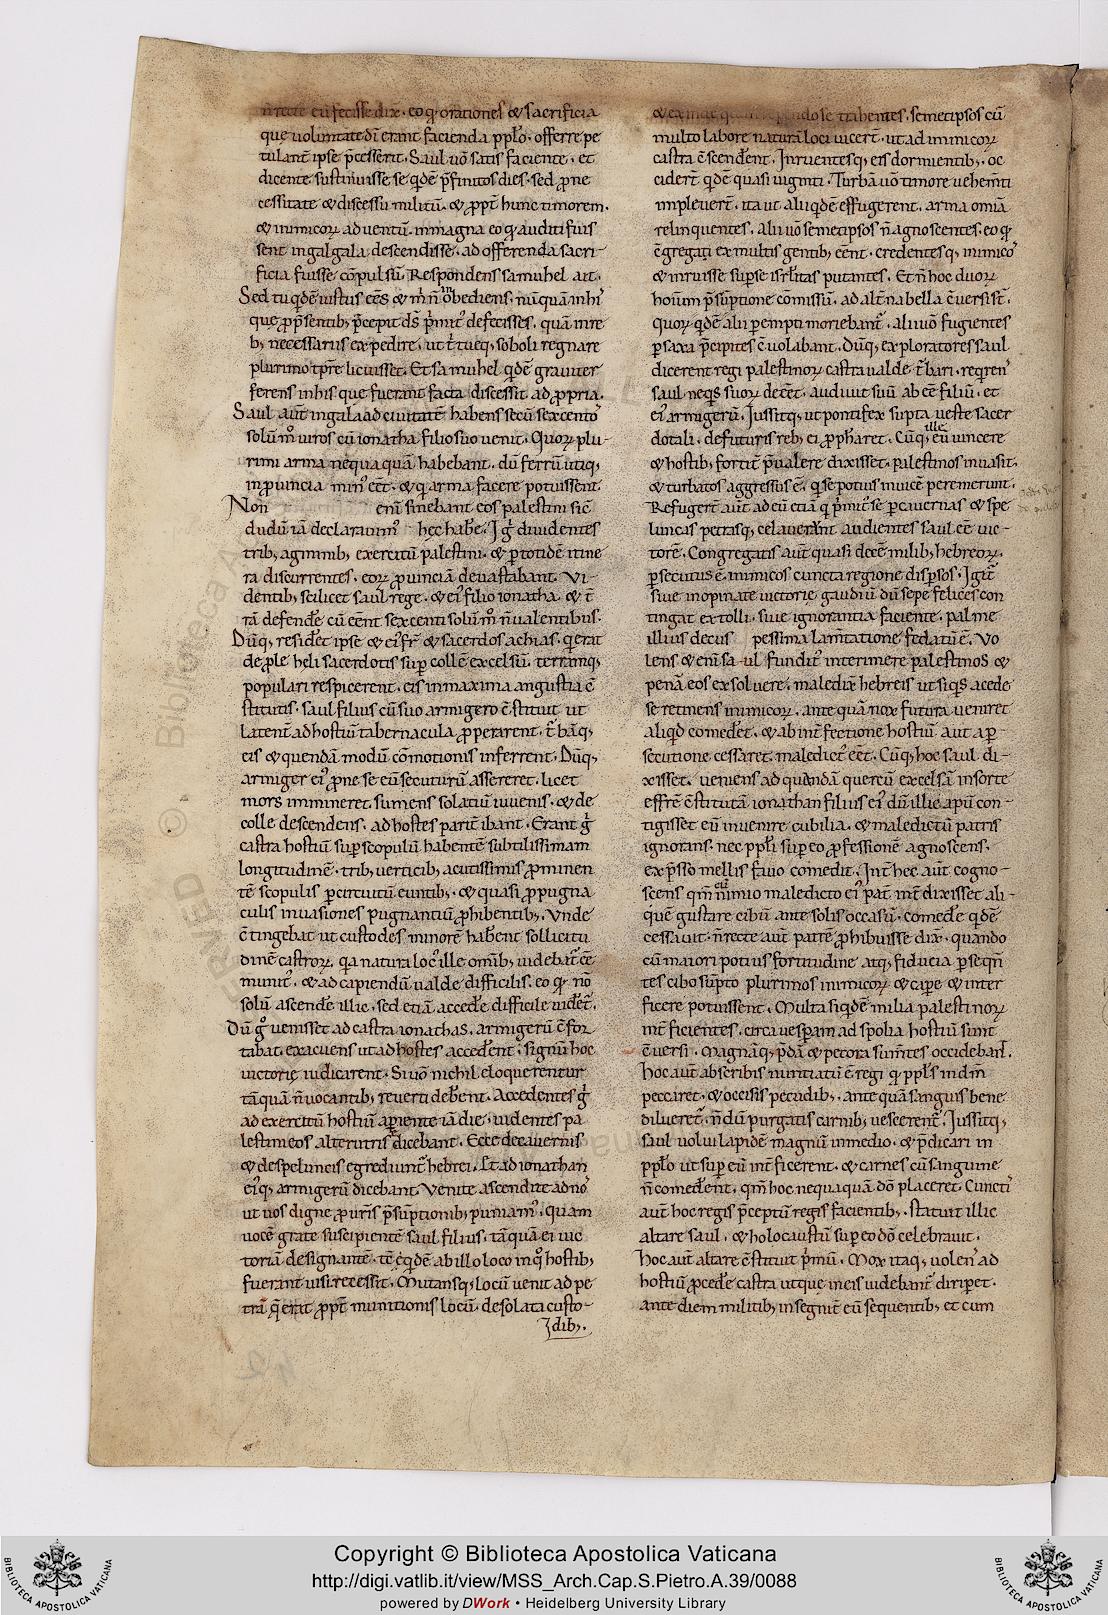 n̄ recte eū fecisse dix̄. eo qđ orationes & sacrificia
que uoluntate dī erant facienda ppło. offerre pe
tulant̄ ipse p̄cesserit. Saul uō satis faciente. et
dicente sustinuisse se qđē p̄finitos dies. sed ꝓ ne
cessitate & discessu militū. & ꝓpt̄ hunc timorem.
& inimicoꝝ aduentū. inmagna eo qđ auditi fuis
sent ingalgala descendisse. ad offerenda sacri
ficia fuisse cōpulsū. Respondens samuhel ait.
Sed tu qđē iustus eēs & m̄ n̄ inobediens. nūquā inhis
que ꝓp̄sentib; p̄cepit ds̄ p̄mitꝰ defecisses. quā inre
b; necessariis expedire. ut t̄ tueq; soboli regnare
plurimo tp̄re licuisset. Et samuhel qđē grauiter
ferens inhis que fuerant facta discessit ad ꝓpria.
Saul aut̄ ingalaad ciuitatē habens secū sexcentoˢ
solūm̊ uiros cū ionatha filio suo uenit. Quoꝝ plu-
rimi arma nequaquā habebant. dū ferrū utiq;
inꝓuincia minꝰ eēt. & qui arma facere potuissent.
Non enī sinebant eos palestini sic̄
dudū iā declarauimꝰ hęc habē. Igr̄ diuidentes
trib; agminib; exercitū palestini. & ꝑ totidē itine
ra discurrentes. eoꝝ ꝓuinciā deuastabant. Vi-
dentib; scilicet saul rege. & eiꝰ filio ionatha & t̄
rā defendē cū eēnt sexcenti solūm̊ n̄ ualentibus.
Dūq; residēt ipse & eiꝰ fr̄ & sacerdos achias. q̄ erat
de ꝓle heli sacerdotis suꝑ collē excelsū. terrāmq;
populari respicerent. eis inmaxima angustia c̄
stitutis. saul filius cū suo armigero c̄stituit ut
latent̄ ad hostiū tabernacula ꝓperarent. t̄bāq;
eis & quendā modū cōmotionis inferrent. Dūq;
armiger eiꝰ ꝓne se eū secuturū assereret. licet
mors immineret. sumens solatiū iuuenis. & de
colle descendens. ad hostes parit̄ ibant. Erant g̊
castra hostiū suꝑ scopulū habentē subtilissimam
longitudinē. trib; uerticib; acutissimis ꝓminen
tē scopulis ꝑ circuitū euntib;. & quasi ꝓpugna
culis inuasiones pugnantiū ꝓhibentib;. Vnde
c̄tingebat ut custodes minorē habēnt sollicitu
dinē castroꝝ. qa natura locꝰ ille omīb; uidebat̄ eē
munitꝰ. & ad capiendū ualde difficilis. eo qđ nō
solū ascendē illic. sed etiā accedē difficile uidēt̄.
Dū g̊ uenisset ad castra ionathas. armigerū c̄for
tabat. exacuens ut ad hostes accedēnt. signū hoc
uictorie iudicarent. Si uō nichil eloquerentur
tāquā n̄ uocantib; reuerti debēnt. Accedentes g̊
ad exercitū hostiū aꝑiente iā die. uidentes pa
lestineos alterutris dicebant. Ecce de cauernis
& de speluncis egrediunt̄ hebrei. Et ad ionathan
eiꝰq; armigerū dicebant. Venite ascendite ad noˢ
ut uos digne ꝓ uris p̄sūptionib; puniamꝰ. quam
uocē grate suscipientē saul filius. tāquā ei uic
toriā designantē. tē qđē ab illo loco in quo hostib;
fuerant uisi recessit. Mutansq; locū uenit ad pe
trā q̄ erat ꝓpt̄ munitionis locū. desolata custo-
dib;.
multo labore naturā loci uicert̄. ut ad inimicoꝝ
castra c̄scendēnt. Inruentesq; eis dormientib;. oc
cidert̄ qđē quasi uiginti. Turbā uō timore uehemt̄i
impleuert̄. ita ut alii qđē effugerent. arma omīa
relinquentes. alii uō semetipsos n̄ agnoscentes. eo qđ
c̄gregati ex multis gentib; eēnt. credentesq; inimicoˢ
& inruisse suꝑ se isrhelitas putantes. Et n̄ hoc duoꝝ
hoīum p̄sūptione cōmissū. ad alt̄na bella c̄uersi st̄.
Quoꝝ qđē alii ꝑempti moriebant̄. alii uō fugientes
ꝑ saxa p̄cipites c̄uolabant. Dūq; exploratores saul
dicerent regi palestinoꝝ castra ualde t̄bari. reqrenˢ
saul neqs suoꝝ deeēt. audiuit suū abeē filiū. et
eiꝰ armigerū. Iussitq; ut pontifex supta ueste sacer
dotali. de futuris reb; ei ꝓphāret. Cūq; ille eū uincere
& hostib; fortit̄ p̄ualere dixisset. palestinos inuasit.
& turbatos aggressus ē. qi se potius inuicē peremerunt.
Refugert̄ aut̄ ad eū etiā qi p̄mitꝰ se ꝑ cauernas & spe
luncas petrasq; celauerānt audientes saul eē uic-
torē. Congregatis aut̄ quasi decē milib; hebreoꝝ.
ꝑsecutus ē inimicos cuncta regione disꝑsos. Igit̄
siue inopinate uictorie gaudiū dū sepe felices con
tingat extolli. siue ignorantia faciente. palme
illius decus pessima lam̄tatione fedatū ē. Vo
lens & enī sa-ul fundit̄ interimere palestinos &
penā eos exsoluere. maledix̄ hebreis ut siqs acede
se retinens inimicoꝝ. ante quā nox futura ueniret
aliqđ comedēt. & ab int̄fectione hostiū aut a ꝑ-
secutione cessaret. maledictꝰ eēt. Cūq; hoc saul di-
xisset. ueniens ad quandā quercū excelsā insorte
effrē c̄stitutā ionathan filius eiꝰ dū illic apū con-
tigisset eū inuenire cubilia. & maledictū patris
ignorans. nec ppłi suꝑ eo ꝓfessionē agnoscens.
exp̄sso mellis fauo comedit. Int̄ hec aut̄ cogno-
scens qm̄ cū nimio maledicto eiꝰ pat̄ int̄dixisset ali-
quē gustare cibū ante solis occasū. comedē qđē
cessauit. n̄ recte aut̄ patrē ꝓhibuisse dix̄. quando
cū maiori potius fortitudine atq; fiducia ꝑseqn̄
tes cibo sūpto plurimos inimicoꝝ & capē & inter
ficere potuissent. Multa siqđē milia palestinoꝝ
int̄ficientes. circa uesꝑam ad spolia hostiū sunt
c̄uersi. Magnāq; p̄dā & pecora sum̄tes occidebant̄.
Hoc aut̄ ab scribis nuntiatū ē regi qi ppłs in dm̄
peccaret. & occisis pecudib;. ante quā sanguis bene
diluerēt̄. n̄dū purgatis carnib; uescerent̄. Iussitq;
saul uolui lapidē magnū inmedio. & p̄dicari in
ppło ut suꝑ eū int̄ficerent. & carnes cū sanguine
n̄ comedēnt. qm̄ hoc nequaquā dō placeret. Cunctiˢ
aut̄ hoc regis p̄ceptū regis facientib;. statuit illic
altare saul. & holocaustū suꝑ eo dō celebrauit.
Hoc aut̄ altare c̄stituit p̄mū. Mox itaq; uolenˢ ad
hostiū ꝓcedē castra utque ineis uidebant̄ diriꝑet.
ante diem militib; insegnit̄ eū sequentib; et cum
Copyright © Biblioteca Apostolica Vaticana
http://digi.vatlib.it/view/MSS_Arch.Cap.S.Pietro.A.39/0088
powered by DWork • Heidelberg University Library